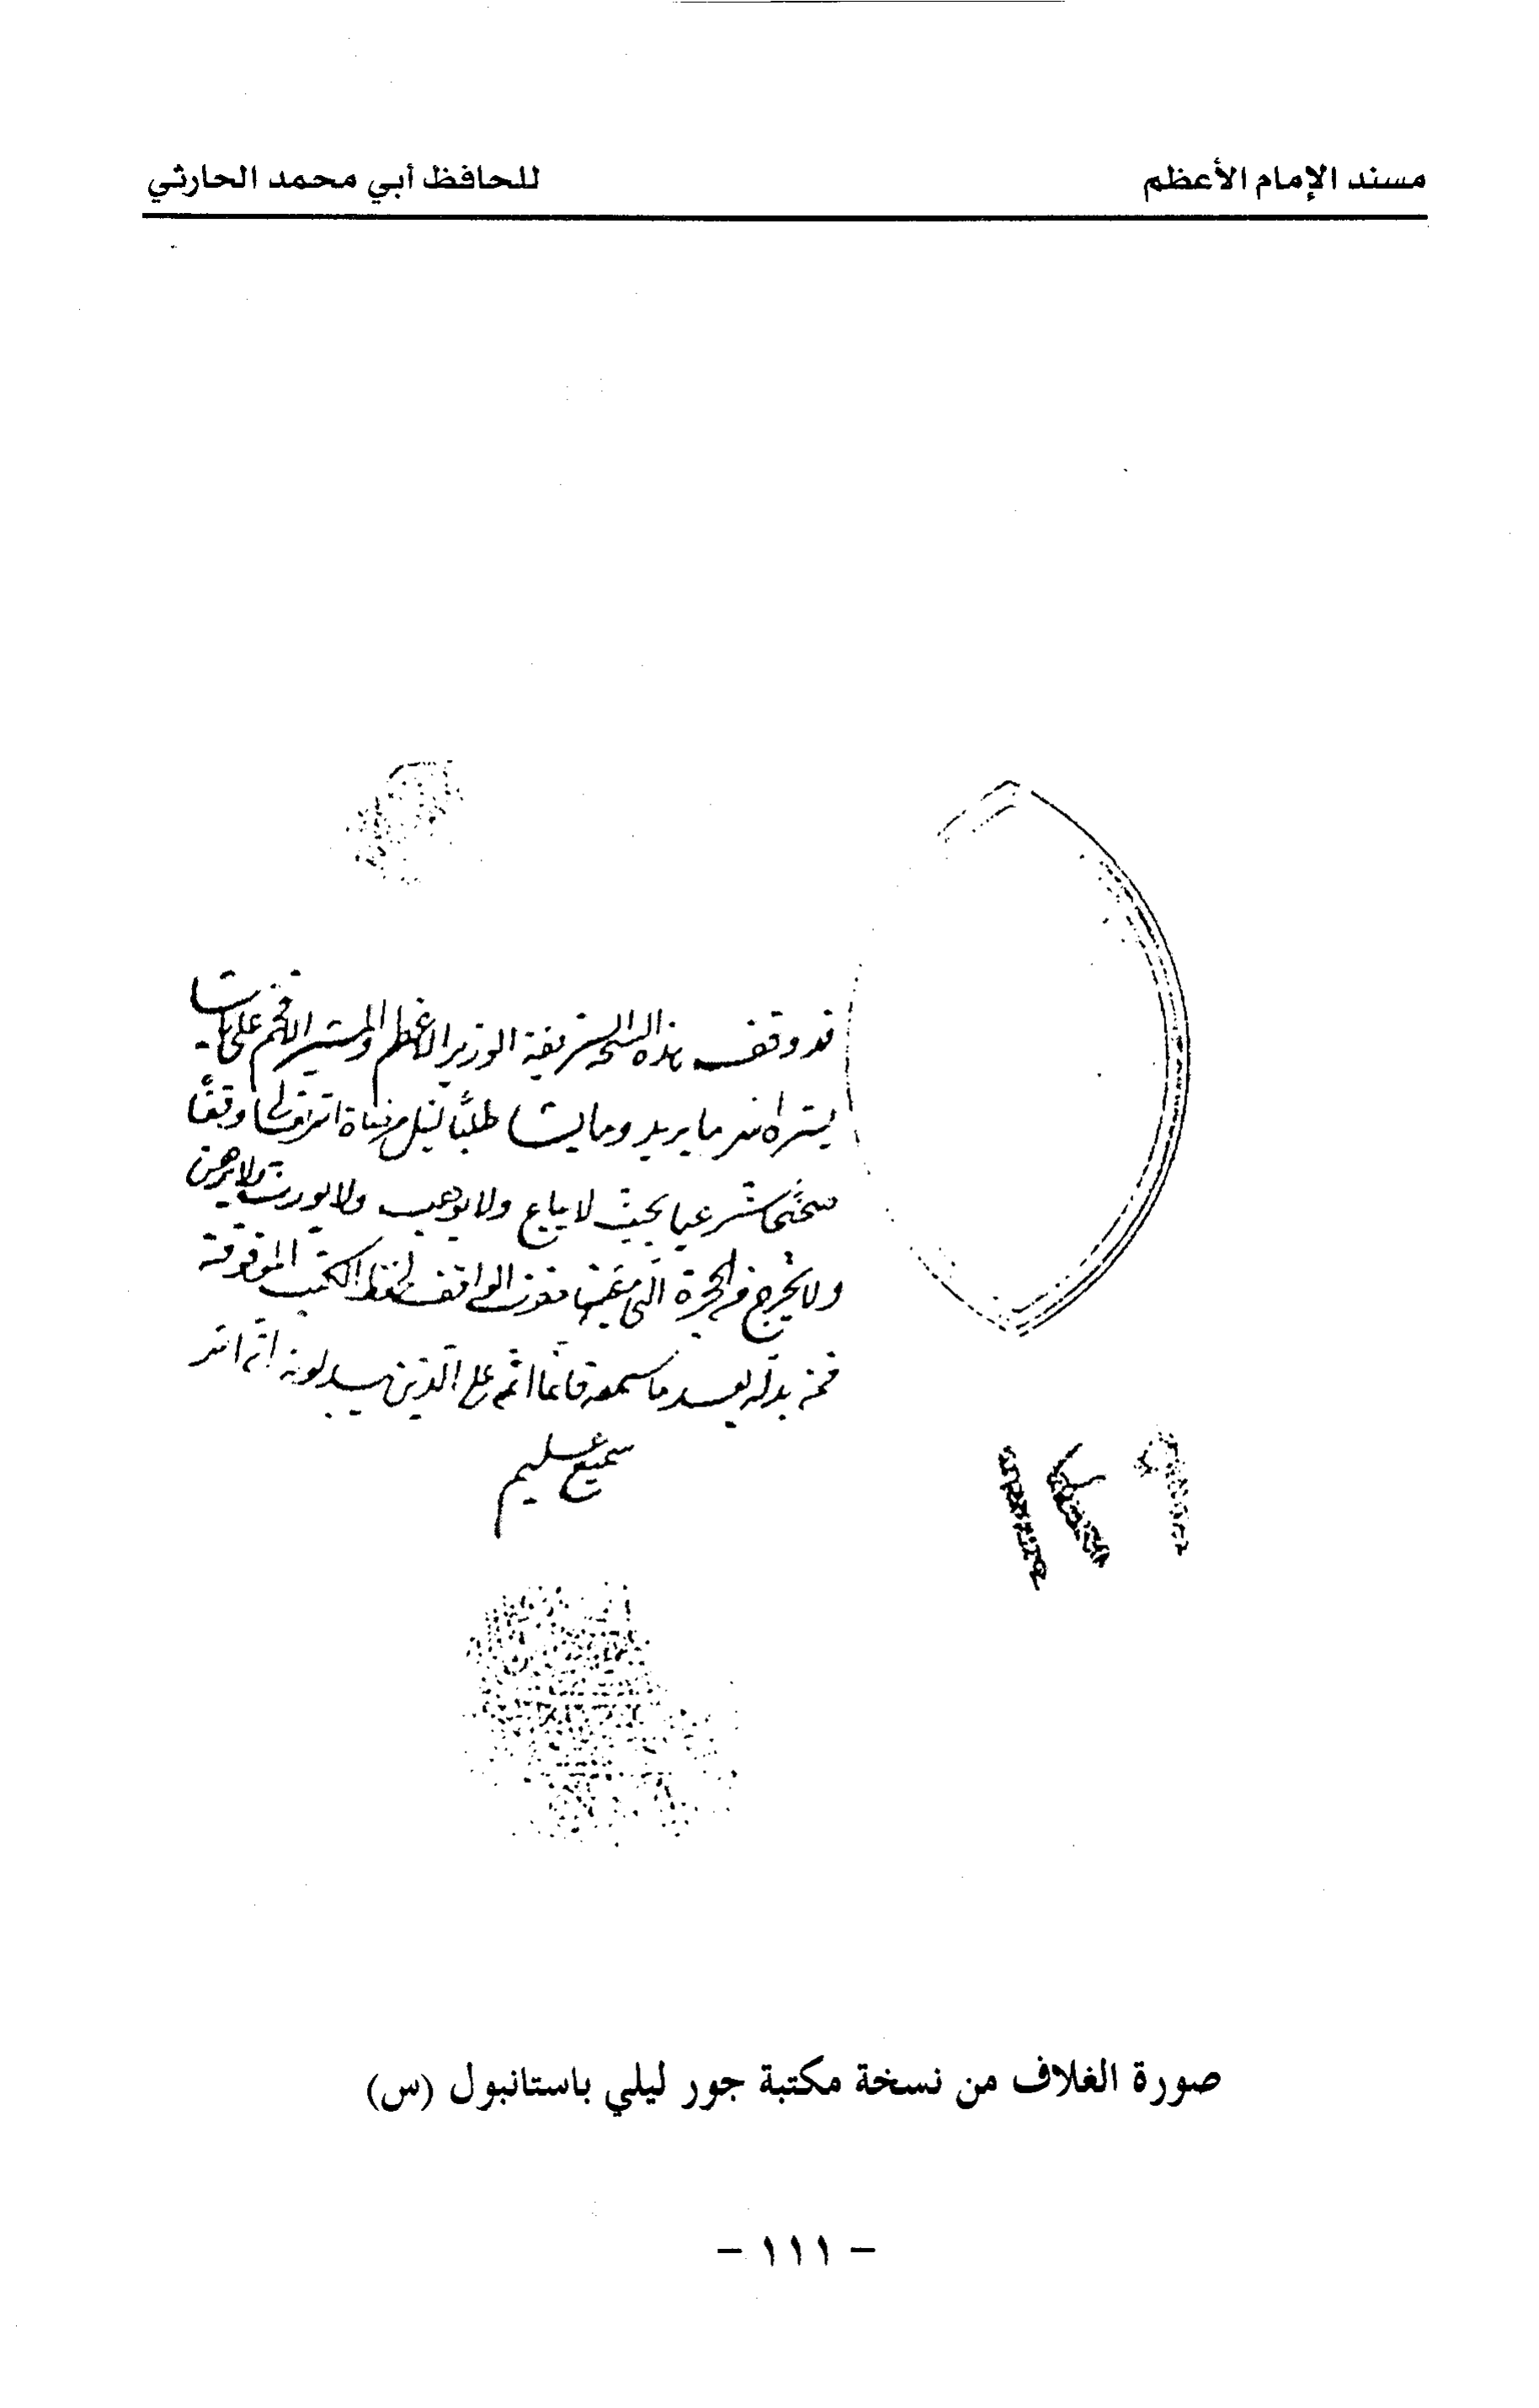 مسند الإمام الأعظم
للحافظ أبي محمد الحارثي
قد وقف هذه النسخة الشريفة الوزير الأعظم والمشير الأفخم علي پاشا
يسر الله ما يريد وما يشا طلبًا لنيل مرضاة الله تعالى وقفًا
صحيحًا شرعيا بحيث لا يباع ولا يوهب ولا يورث ولا يرهن
ولا يخرج من الحجرة التي عينها الواقف لحفظ الكتب الموقوفة
فمن بدله بعد ما سمعه فانما اثمه على الّذين يبدلونه انّ الله
سميع عليم
صورة الغلاف من نسخة مكتبة جور ليلي باستانبول (س)
- ١١١ -